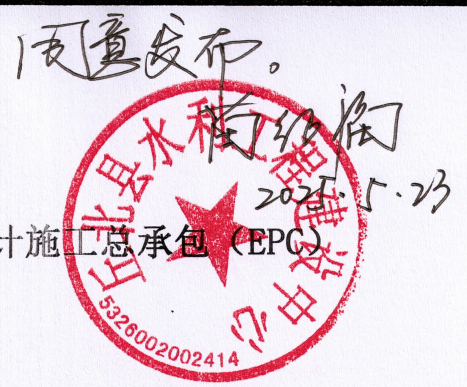 同意发布。
2025.5.23
计施工总承包（EPC）
丘北县水利工程建设中心
5326002002414